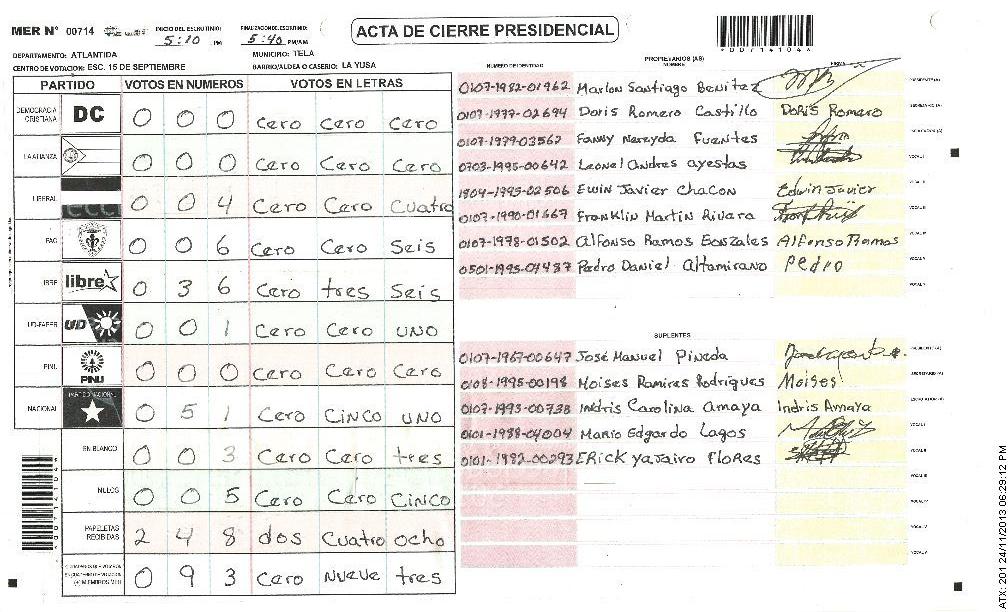 MER N° 00714 INICIO DEL ESCRUTINIO: 5:10 PM FINALIZACION DEL ESCRUTINIO: 5:40 PM/AM ACTA DE CIERRE PRESIDENCIAL
DEPARTAMENTO: ATLANTIDA MUNICIPIO: TELA
CENTRO DE VOTACION: ESC. 15 DE SEPTIEMBRE BARRIO/ALDEA O CASERIO: LA YUSA
PARTIDO VOTOS EN NUMEROS VOTOS EN LETRAS
DEMOCRACIA CRISTIANA DC 0 0 0 Cero Cero Cero
LA ALIANZA 0 0 0 Cero Cero Cero
LIBERAL 0 0 4 Cero Cero Cuatro
PAC 0 0 6 Cero Cero Seis
LIBRE libre 0 3 6 Cero tres Seis
UD-FAPER UD 0 0 1 Cero Cero UNO
PINU PINU 0 0 0 Cero Cero Cero
NACIONAL PARTIDO NACIONAL 0 5 1 Cero CINCO UNO
EN BLANCO 0 0 3 Cero Cero tres
NULOS 0 0 5 Cero Cero CINCO
PAPELETAS RECIBIDAS 2 4 8 dos Cuatro ocho
0 9 3 Cero NUEVE tres
PROPIETARIOS (AS)
NUMERO DE IDENTIDAD NOMBRE FIRMA
0107-1982-01962 Marlon Santiago Benitez PRESIDENTE (A)
0107-1977-02694 Doris Romero Castillo Doris Romero SECRETARIO (A)
0107-1979-03562 Fanny Nereyda Fuentes ESCRUTADOR (A)
0703-1995-00642 Leonel Andres ayestas VOCAL I
1804-1995-02506 Ewin Javier Chacon Edwin Javier VOCAL II
0107-1990-01667 Franklin Martin Rivara VOCAL III
0107-1978-01502 Alfonso Ramos Gonzales Alfonso Ramos VOCAL IV
0501-1995-04487 Pedro Daniel Altamirano Pedro VOCAL V
SUPLENTES
0107-1967-00647 José Manuel Pineda PRESIDENTE (A)
0108-1995-00198 Moises Ramires Rodrigues Moises SECRETARIO (A)
0107-1993-00738 Indris Carolina amaya Indris Amaya ESCRUTADOR (A)
0101-1988-04004 Mario Edgardo Lagos VOCAL I
0101-1982-00293 ERick yajairo Flores VOCAL II
ATX: 201 24/11/2013 06:29:12 PM